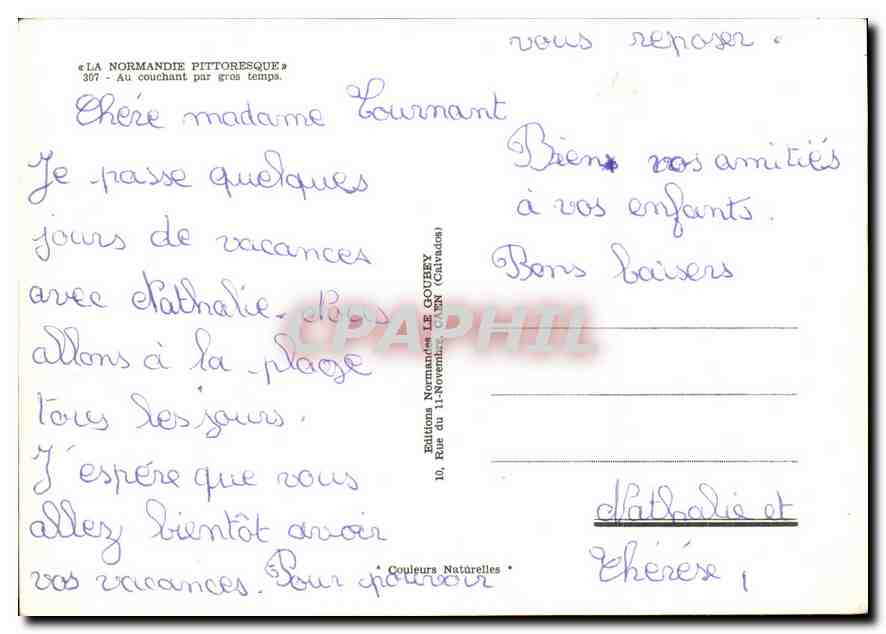 «LA NORMANDIE PITTORESQUE»
307 - Au couchant par gros temps.
Chére madame Tournant
Je passe quelques
jours de vacances
avec Nathalie. Nous
allons à la plage
tous les jours.
J'espére que vous
allez bientôt avoir
vos vacances. Pour pouvoir
vous reposer.
Biens vos amitiés
à vos enfants.
Bons baisers
Nathalie et
Thérèse,
Editions Normandes LE GOUBEY
10, Rue du 11-Novembre, CAEN (Calvados)
* Couleurs Naturelles *
CPAPHIL